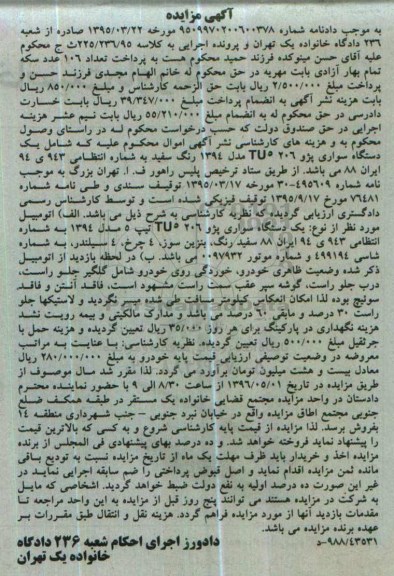 آگهی مزایده
به موجب دادنامه شماره ۹۵۰۹۹۷۰۲۰۰۶۰۰۳۷۸ مورخه ۱۳۹۵/۰۳/۲۲ صادره از شعبه
۲۳۶ دادگاه خانواده یک تهران و پرونده اجرایی به کلاسه ۲۲۵/۲۳۶/۹۵ث ج محکوم
علیه آقای حسن مینوکده فرزند حمید محکوم هست به پرداخت تعداد ۱۰۶ عدد سکه
تمام بهار آزادی بابت مهریه در حق محکوم له خانم الهام مجدی فرزند حسن و
پرداخت مبلغ ۲/۵۰۰/۰۰۰ ریال بابت حق الزحمه کارشناس و مبلغ ۸۵۰/۰۰۰ ریال
بابت هزینه نشر آگهی به انضمام پرداخت مبلغ ۳۹/۳۴۷/۰۰۰ ریال بابت خسارت
دادرسی در حق محکوم له به انضمام مبلغ ۵۵/۲۱۰/۰۰۰ ریال بابت نیم عشر هزینه
اجرایی در حق صندوق دولت که حسب درخواست محکوم له در راستای وصول
محکوم به و هزینه های کارشناسی نشر آگهی اموال محکوم علیه که شامل یک
دستگاه سواری پژو ۲۰۶ TU۵ مدل ۱۳۹۴ رنگ سفید به شماره انتظامی ۹۴۳ ی ۹۴
ایران ۸۸ می باشد. از طریق ستاد ترخیص پلیس راهور ف. ا. تهران بزرگ به موجب
نامه شماره ۴۹۵۶۰۹-۳۰ مورخه ۱۳۹۵/۰۳/۱۷ توقیف سندی و طی نامه شماره
۷۶۴۸۱ مورخ ۱۳۹۵/۹/۱۷ توقیف فیزیکی شده است و توسط کارشناس رسمی
دادگستری ارزیابی گردیده که نظریه کارشناسی به شرح ذیل می باشد. الف) اتومبیل
مورد نظر از نوع: یک دستگاه سواری پژو ۲۰۶ TU۵ تیپ ۵ مدل ۱۳۹۴ به شماره
انتظامی ۹۴۳ ی ۹۴ ایران ۸۸ سفید رنگ، بنزین سوز، ۴ چرخ، ۴ سیلندر، به شماره
شاسی ۴۹۹۱۹۴ و شماره موتور ۰۰۹۷۹۳۲ می باشد. ب) در لحظه بازدید از اتومبیل
ذکر شده وضعیت ظاهری خودرو، خوردگی روی خودرو شامل گلگیر جلو راست،
درب جلو راست، گوشه سپر عقب سمت راست مشهود است، فاقد آنتن و فاقد
سوئیچ بوده لذا امکان انعکاس کیلومتر مسافت طی شده میسر نگردید و لاستیکها جلو
راست ۳۰ درصد و مابقی ۶۰ درصد می باشد و مدارک مالکیتی و بیمه رویت نشد
هزینه نگهداری در پارکینگ برای هر روز ۳۵/۰۰۰ ریال تعیین گردیده و هزینه حمل با
جرثقیل مبلغ ۵۰۰/۰۰۰ ریال تعیین گردیده. نظریه کارشناسی: با عنایت به مراتب
معروضه در وضعیت توصیفی ارزیابی قیمت پایه خودرو به مبلغ ۲۸۰/۰۰۰/۰۰۰ ریال
معادل بیست و هشت میلیون تومان برآورد می گردد. لذا مقرر شد مال موصوف از
طریق مزایده در تاریخ ۱۳۹۶/۰۵/۰۱ از ساعت ۸/۳۰ الی ۹ با حضور نماینده محترم
دادستان در واحد مزایده مجتمع قضایی خانواده یک مستقر در طبقه همکف ضلع
جنوبی مجتمع اطاق مزایده واقع در خیابان نبرد جنوبی – جنب شهرداری منطقه ۱۴
بفروش برسد. لذا مزایده از قیمت پایه کارشناسی شروع و به کسی که بالاترین قیمت
را پیشنهاد نماید فروخته خواهد شد. و ده درصد بهای پیشنهادی فی المجلس از برنده
مزایده اخذ و خریدار باید ظرف مهلت یک ماه از تاریخ مزایده نسبت به تودیع باقی
مانده ثمن مزایده اقدام نماید و اصل قبوض پرداختی را ضم سابقه اجرایی نماید در
غیر این صورت ده درصد اولیه به نفع دولت ضبط خواهد گردید. اشخاصی که مایل
به شرکت در مزایده هستند می توانند پنج روز قبل از مزایده به این واحد مراجعه تا
مقدمات بازدید آنها از مورد مزایده فراهم گردد. هزینه نقل و انتقال طبق مقررات بر
عهده برنده مزایده می باشد.
۹۸۸/۴۳۵۳۱-د
دادورز اجرای احکام شعبه ۲۳۶ دادگاه
خانواده یک تهران